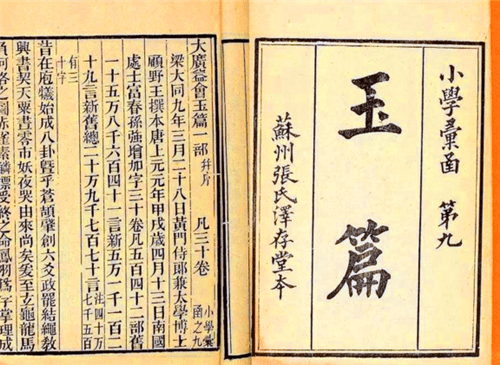 小學彙函 第九
玉篇
蘇州張氏澤存堂本
大廣益會玉篇一部 凡三十卷 小學彙函之九
梁大同九年三月二十八日黃門侍郎兼太學博士
顧野王撰本唐上元元年甲戌歲四月十三日南國
處士富春孫強增加字三十卷凡五百四十二部舊
一十五萬八千六百四十一言新五萬一千一百二
十九言新舊總二十萬九千七百七十言 注四十萬七千五百
有三十字
昔在庖犧始成八卦暨乎蒼頡肇創六爻政罷結繩教
興書契天粟晝零市妖夜哭由來尚矣爰至玄龜龍馬
負河洛之圖赤雀素鱗標受終之命鳳羽爲字掌理成